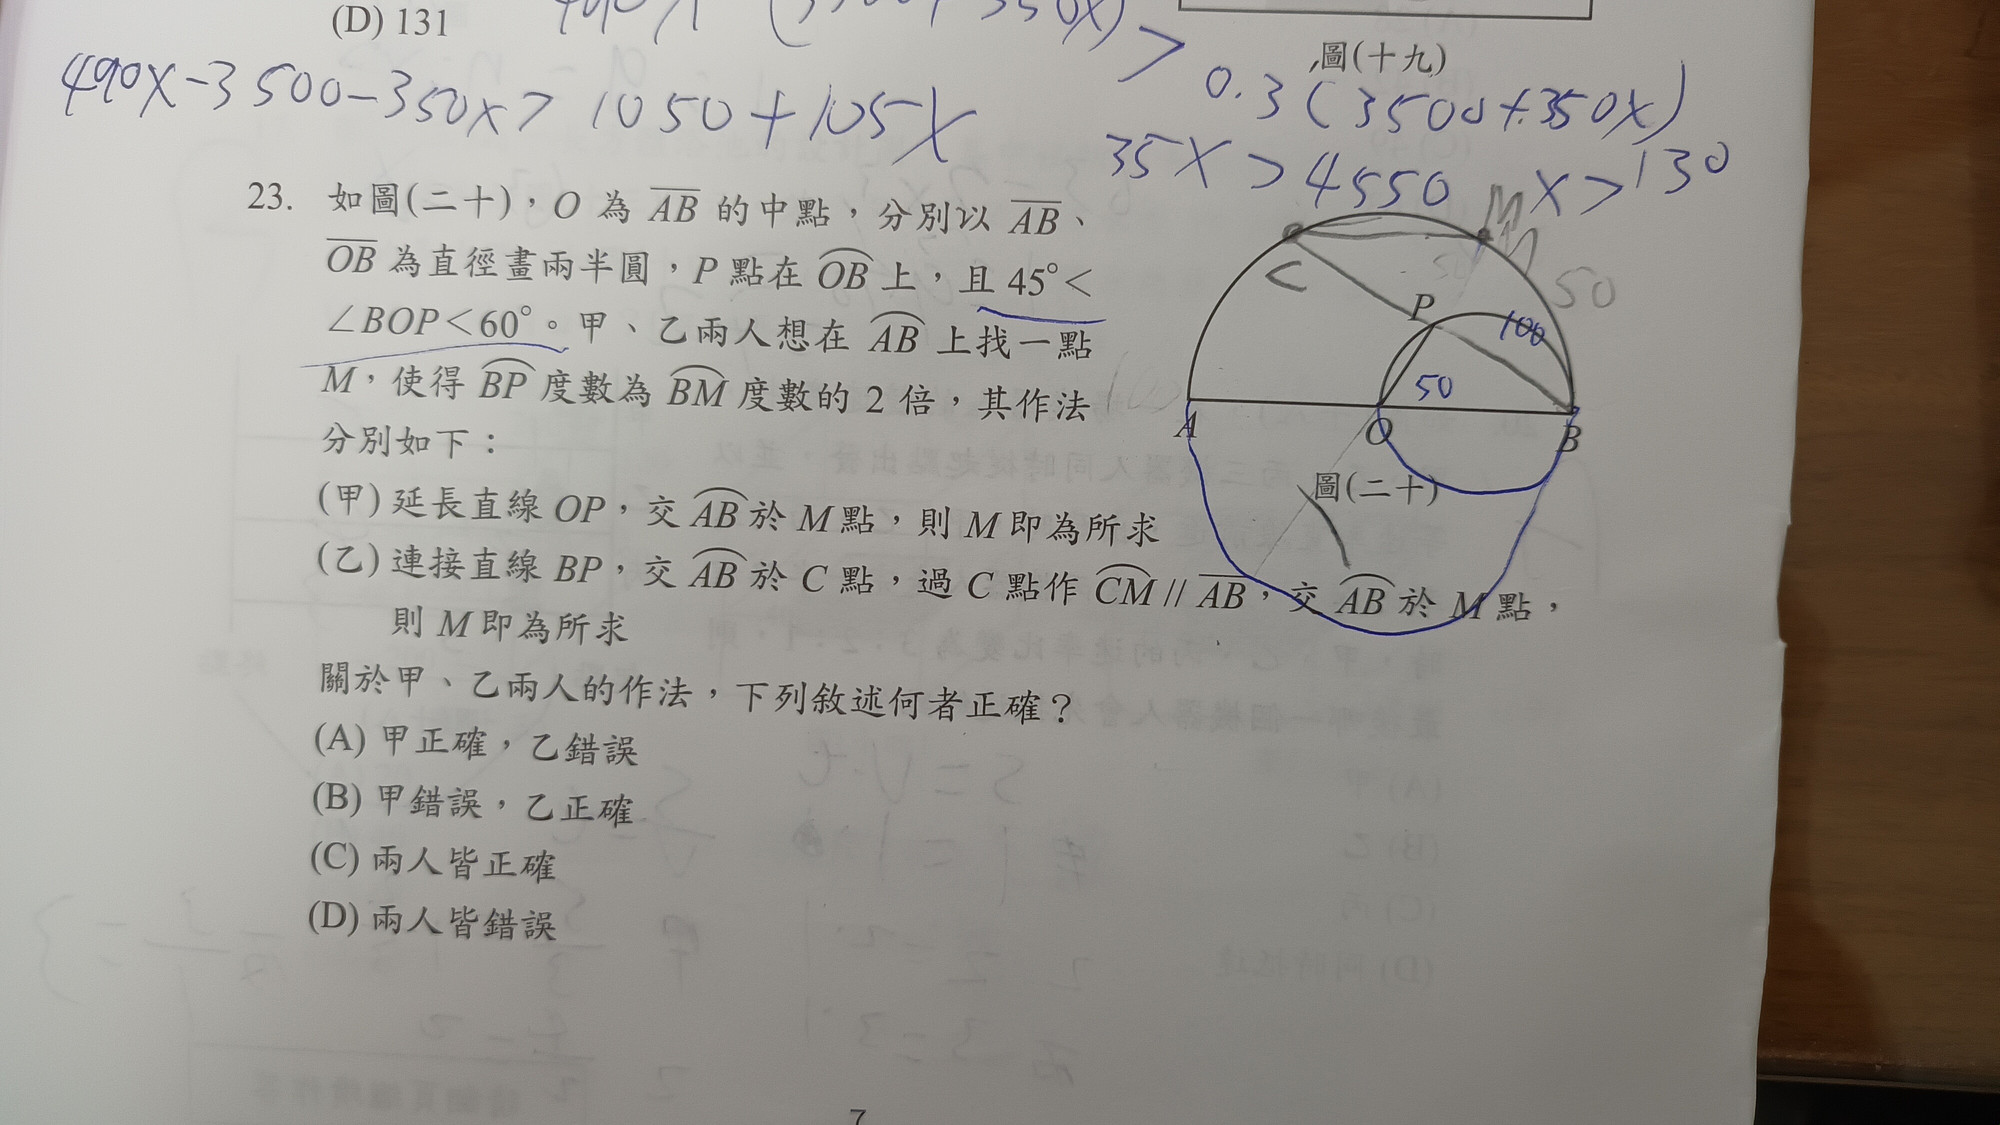 (D) 131
圖(十九)
490X-3500-350X> 1050+105X
0.3(3500+350X)
35X>4550 X>130
23. 如圖(二十)，O 為 AB 的中點，分別以 AB、
OB 為直徑畫兩半圓，P 點在 OB 上，且 45°<
∠BOP<60°。甲、乙兩人想在 AB 上找一點
M，使得 BP 度數為 BM 度數的 2 倍，其作法
分別如下：
(甲) 延長直線 OP，交 AB 於 M 點，則 M 即為所求
(乙) 連接直線 BP，交 AB 於 C 點，過 C 點作 CM // AB，交 AB 於 M 點，
則 M 即為所求
關於甲、乙兩人的作法，下列敘述何者正確？
(A) 甲正確，乙錯誤
(B) 甲錯誤，乙正確
(C) 兩人皆正確
(D) 兩人皆錯誤
M
C
50
P
100
50
A
O
B
圖(二十)
7